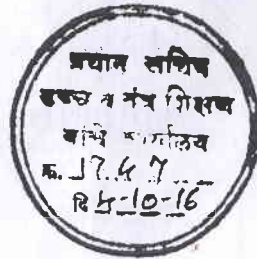 प्रधान सचिव
उच्च व तंत्र शिक्षण
यांचे कार्यालय
क्र. 1747
दि 5-10-16